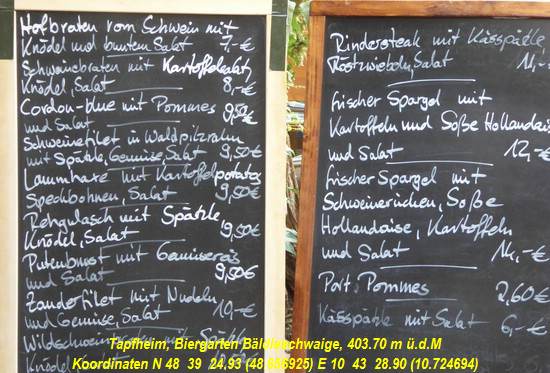 Hofbraten vom Schwein mit
Knödel und buntem Salat 7,-€
Schweinebraten mit Kartoffelsalat,
Knödel, Salat 8,-€
Cordon-blue mit Pommes
und Salat 9,50€
Schweinefilet in Waldpilzrahm
mit Spätzle, Gemüse, Salat 9,50€
Lammhaxe mit Kartoffel
Speckbohnen, Salat 9,50€
Rehgulasch mit Spätzle,
Knödel, Salat 9,50€
Putenbrust mit Gemüsereis
und Salat 9,50€
Zanderfilet mit Nudeln
und Gemüse, Salat 10,-€
Wildschwein mit Spätzle
Knödel
Rindersteak mit Kässpätzle
Röstzwiebeln, Salat 14,-
frischer Spargel mit
Kartoffeln und Soße Hollandaise
und Salat 12,-€
frischer Spargel mit
Schweinerücken, Soße
Hollandaise, Kartoffeln
und Salat 14,-€
Port. Pommes 2,60€
Kässpätzle mit Salat 6,-€
Tapfheim, Biergarten Bäldleschwaige, 403.70 m ü.d.M
Koordinaten N 48 39 24,93 (48.656925) E 10 43 28.90 (10.724694)